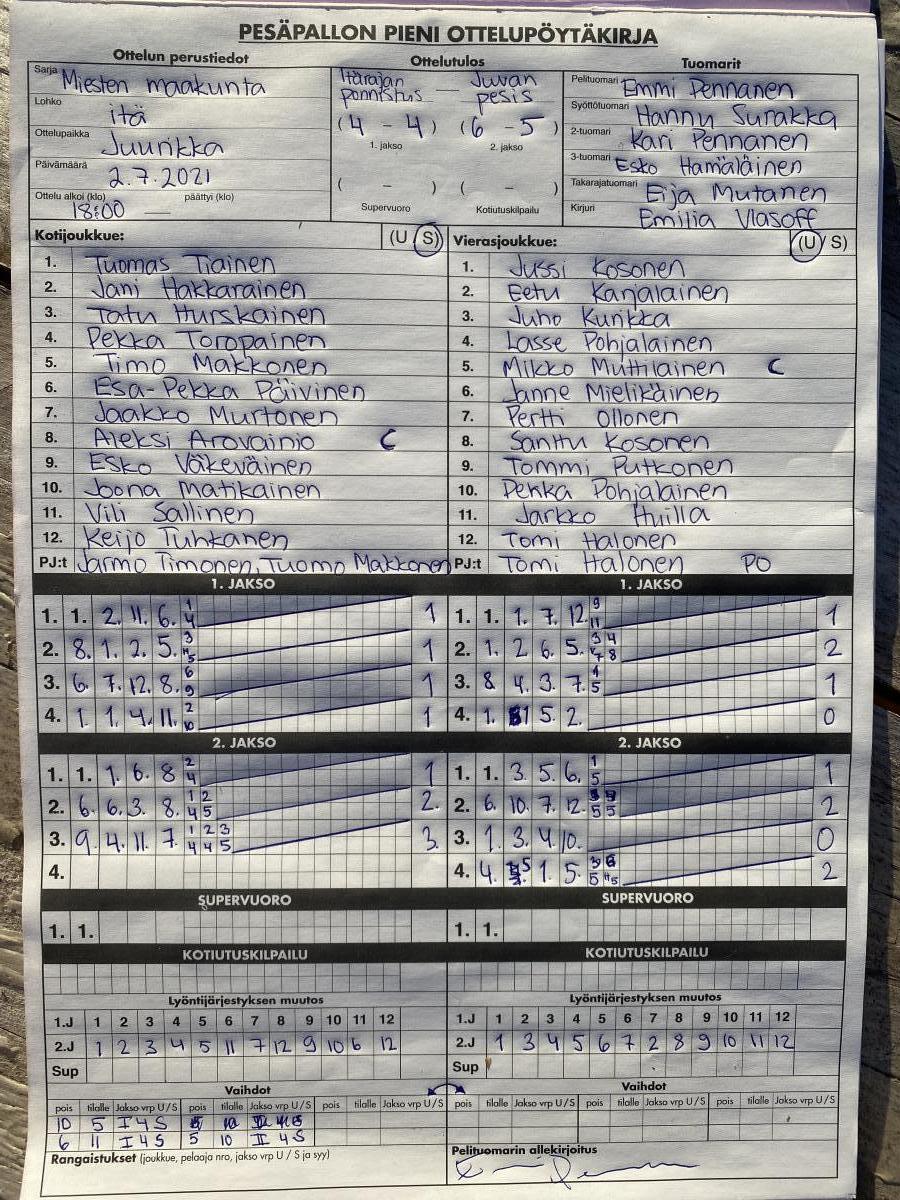 PESÄPALLON PIENI OTTELUPÖYTÄKIRJA
Ottelun perustiedot
Sarja Miesten maakunta
Lohko itä
Ottelupaikka Juurikka
Päivämäärä 2.7.2021
Ottelu alkoi (klo) 18:00 — päättyi (klo)
Ottelutulos
Itärajan ponnistus — Juvan pesis
(4 - 4) (6 - 5)
1. jakso 2. jakso
( - ) ( - )
Supervuoro Kotiutuskilpailu
Tuomarit
Pelituomari Emmi Pennanen
Syöttötuomari Hannu Surakka
2-tuomari Kari Pennanen
3-tuomari Esko Hämäläinen
Takarajatuomari Eija Mutanen
Kirjuri Emilia Vlasoff
Kotijoukkue: (U S)
1. Tuomas Tiainen
2. Jani Hakkarainen
3. Tatu Hurskainen
4. Pekka Toropainen
5. Timo Makkonen
6. Esa-Pekka Päivinen
7. Jaakko Murtonen
8. Aleksi Arovainio C
9. Esko Väkeväinen
10. Joona Matikainen
11. Vili Sallinen
12. Keijo Tuhkanen
PJ:t Jarmo Timonen, Tuomo Makkonen
Vierasjoukkue: (U/S)
1. Jussi Kosonen
2. Eetu Karjalainen
3. Juho Kurikka
4. Lasse Pohjalainen
5. Mikko Muttilainen C
6. Janne Mielikäinen
7. Pertti Ollonen
8. Santtu Kosonen
9. Tommi Putkonen
10. Pekka Pohjalainen
11. Jarkko Huilla
12. Tomi Halonen
PJ:t Tomi Halonen PO
1. JAKSO
1. 1. 2. 11. 6. 1 4 1
2. 8. 1. 2. 5. 3 H5 1
3. 6. 7. 12. 8. 6 9 1
4. 1. 1. 4. 11. 2 10 1
1. JAKSO
1. 1. 1. 7. 12. 9 11 1
2. 1. 2 6. 5. 3 4 8 2
3. 8 4. 3. 7. 5 1
4. 1. 1 5 2. 0
2. JAKSO
1. 1. 1. 6. 8 2 4 1
2. 6. 6. 3. 8. 1 2 4 5 2.
3. 9. 4. 11. 7. 1 2 3 4 4 5 3.
4.
2. JAKSO
1. 1. 3. 5. 6. 1 5 1
2. 6. 10. 7. 12. 5 5 2
3. 1. 3. 4. 10. 0
4. 4. 5 1. 5. 5 H5 2
SUPERVUORO
1. 1.
SUPERVUORO
1. 1.
KOTIUTUSKILPAILU
KOTIUTUSKILPAILU
Lyöntijärjestyksen muutos
1.J 1 2 3 4 5 6 7 8 9 10 11 12
2.J 1 2 3 4 5 11 7 12 9 10 6 12
Sup
Lyöntijärjestyksen muutos
1.J 1 2 3 4 5 6 7 8 9 10 11 12
2.J 1 3 4 5 6 7 2 8 9 10 11 12
Sup
Vaihdot
pois tilalle Jakso vrp U/S pois tilalle Jakso vrp U/S pois tilalle Jakso vrp U/S
10 5 I 4 S
6 11 I 4 S 5 10 II 4 S
Vaihdot
pois tilalle Jakso vrp U/S pois tilalle Jakso vrp U/S pois tilalle Jakso vrp U/S
Rangaistukset (joukkue, pelaaja nro, jakso vrp U / S ja syy)
Pelituomarin allekirjoitus